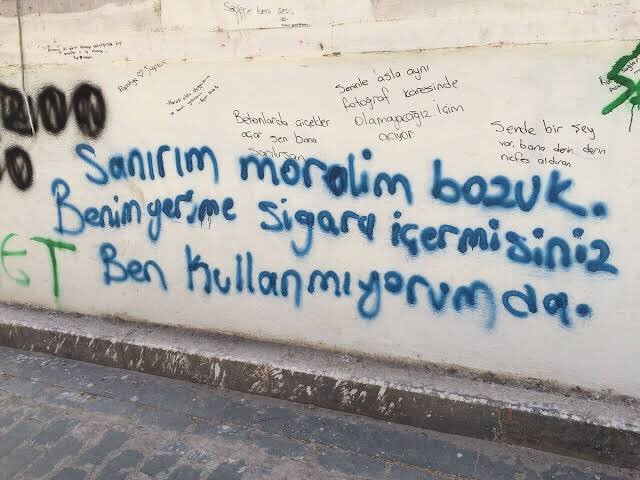 Sadece beni sev.
Seninle asla aynı
fotoğraf karesinde
Olamayacağız içim
acıyor
Betonlarda çicekler
açar sen bana
sarılırsan
Sende bir şey
var, bana derin derin
nefes aldıran
Sanırım moralim bozuk.
Benim yerime sigara içermisiniz
Ben kullanmıyorumda.
ET